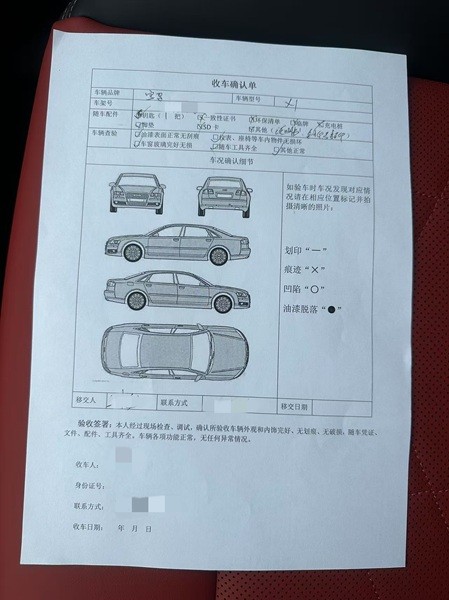 收车确认单
车辆品牌 宝马 车辆型号 X1
车架号
随车配件 钥匙(1把) 一致性证书 环保清单 临牌 充电桩
脚垫 SD卡 其他
车辆查验 油漆表面正常无刮痕 仪表、座椅等车内物件无损坏
车窗玻璃完好无损 随车工具齐全 其他正常
车况确认细节
如验车时车况发现对应情
况请在相应位置标记并拍
摄清晰的照片:
划印“一”
痕迹“×”
凹陷“○”
油漆脱落“●”
移交人 联系方式 移交日期
验收签署:本人经过现场检查、调试、确认所验收车辆外观和内饰完好、无划痕、无破损,随车凭证、
文件、配件、工具齐全,车辆各项功能正常,无任何异常情况。
收车人:
身份证号:
联系方式:
收车日期: 年 月 日